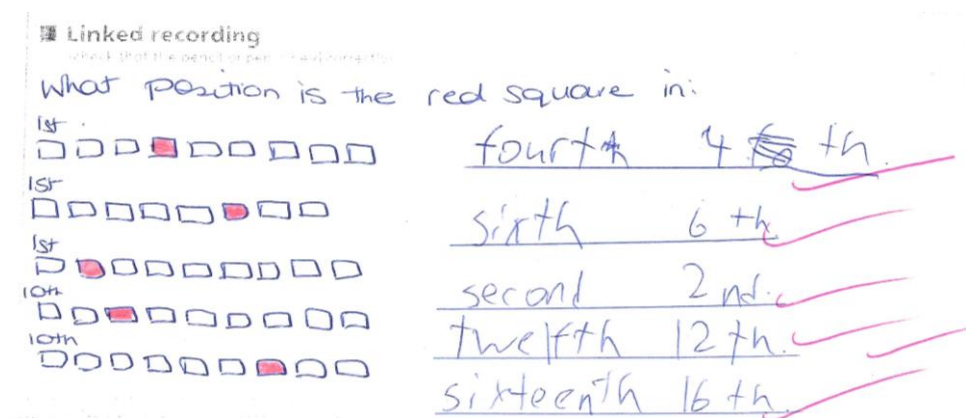 Linked recording
What position is the red square in:
1st
fourth 4 th.
1st
sixth 6 th
1st
second 2 nd.
10th
twelfth 12 th.
10th
sixteenth 16 th